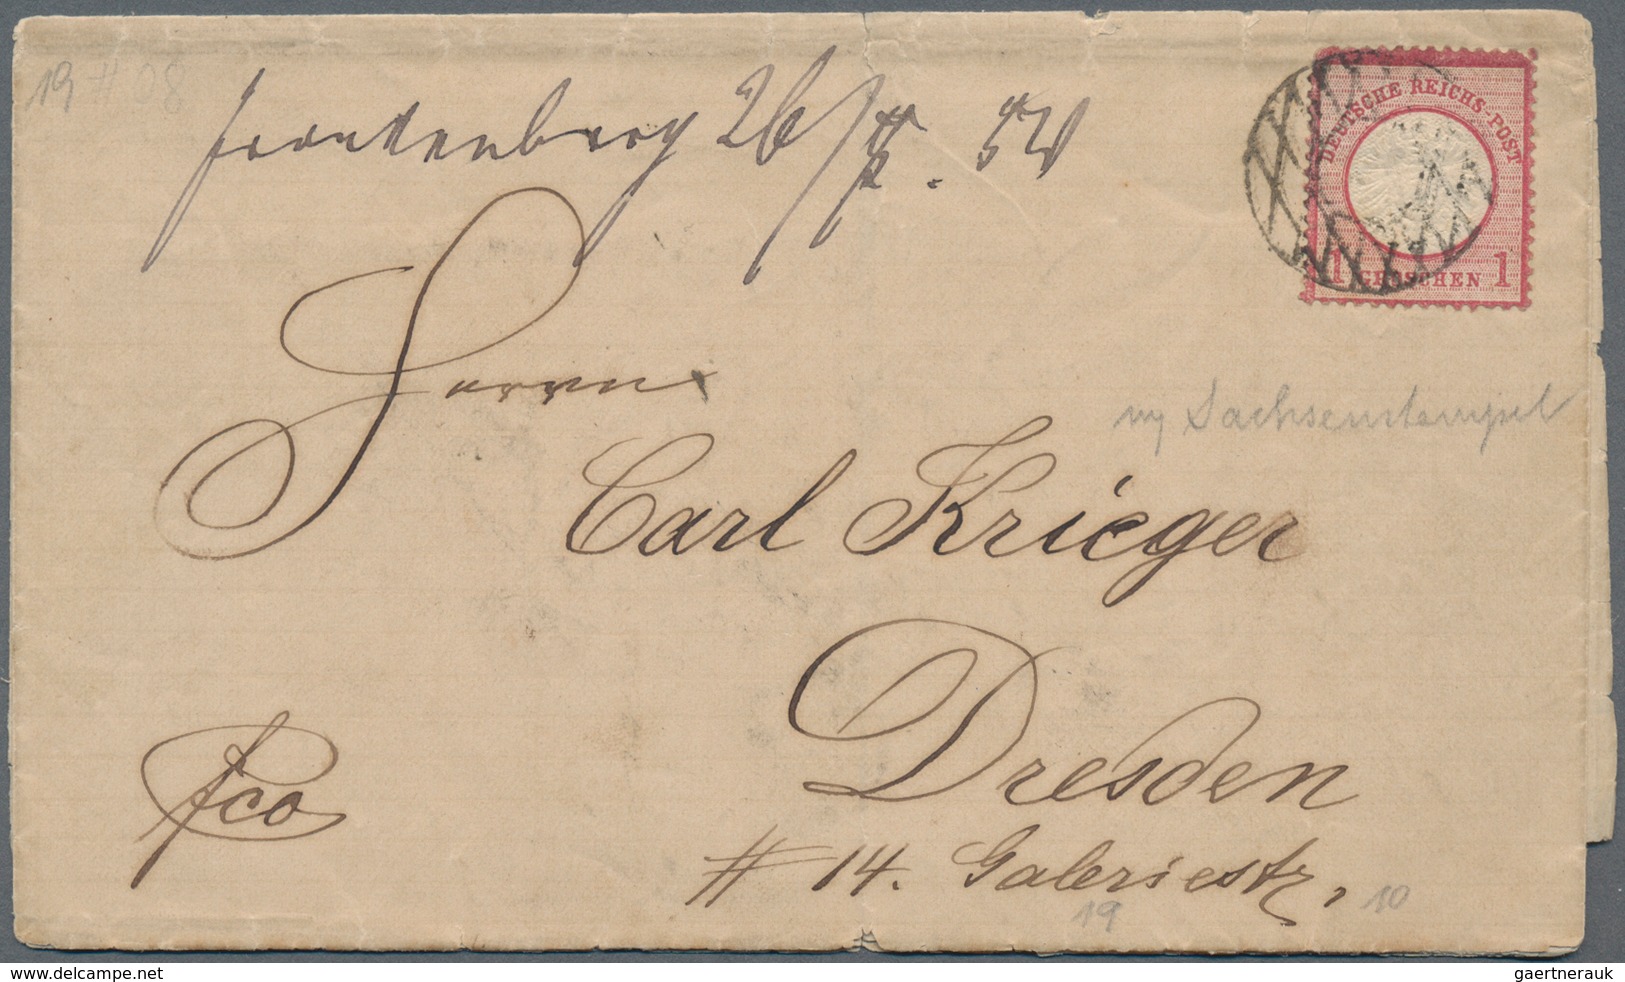 19 # 08
Frankenberg 26/
DEUTSCHE REICHS-POST
1 GROSCHEN 1
Herrn
Sachsenstempel
Carl Krieger
Dresden
fco
# 14. Galeriestr,
19 10
www.delcampe.net
gaertnerauk